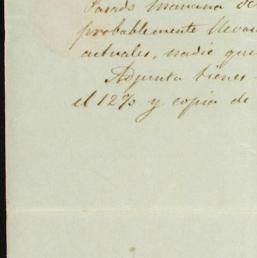 Pasado mañana de
probablemente lleva
actuales, nadie que
Adjunta tienes
el 12% y copia de